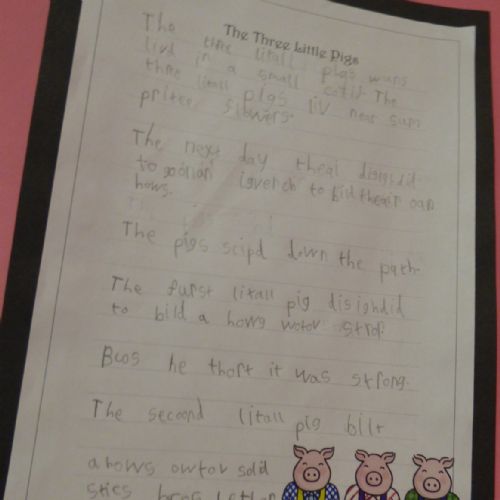 The Three Little Pigs
The three litall pigs wans
livd in a small cotij The
three litall pigs liv near sum
pritee flowers.
The next day theai disighdid
to go on an to bild theaer oan
hows.
The pigs scipd down the path.
The furst litall pig disighdid
to bild a hows wotov strof
Bcos he thort it was strong.
The secoond litall pig bilt
a hows owtov solid